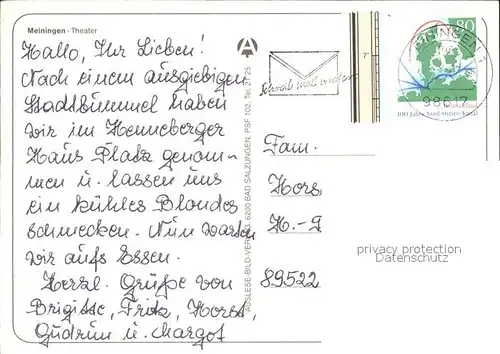 Meiningen · Theater
Hallo, Ihr Lieben!
Nach einem ausgiebigen
Stadtbummel haben
wir im Henneberger
Haus Platz genom-
men u. lassen uns
ein kühles Blondes
schmecken. Nun warten
wir aufs Essen.
Herzl. Grüße von
Brigitte, Fritz, Horst,
Gudrun u. Margot
A
AUSLESE-BILD-VERLAG, 6200 BAD SALZUNGEN, PSF 102, Tel. 27 25
Schreib mal wieder
80
MEININGEN 1
98617
100 Jahre Nord-Ostsee-Kanal
Fam.
Hors
H.-G
89522
privacy protection
Datenschutz